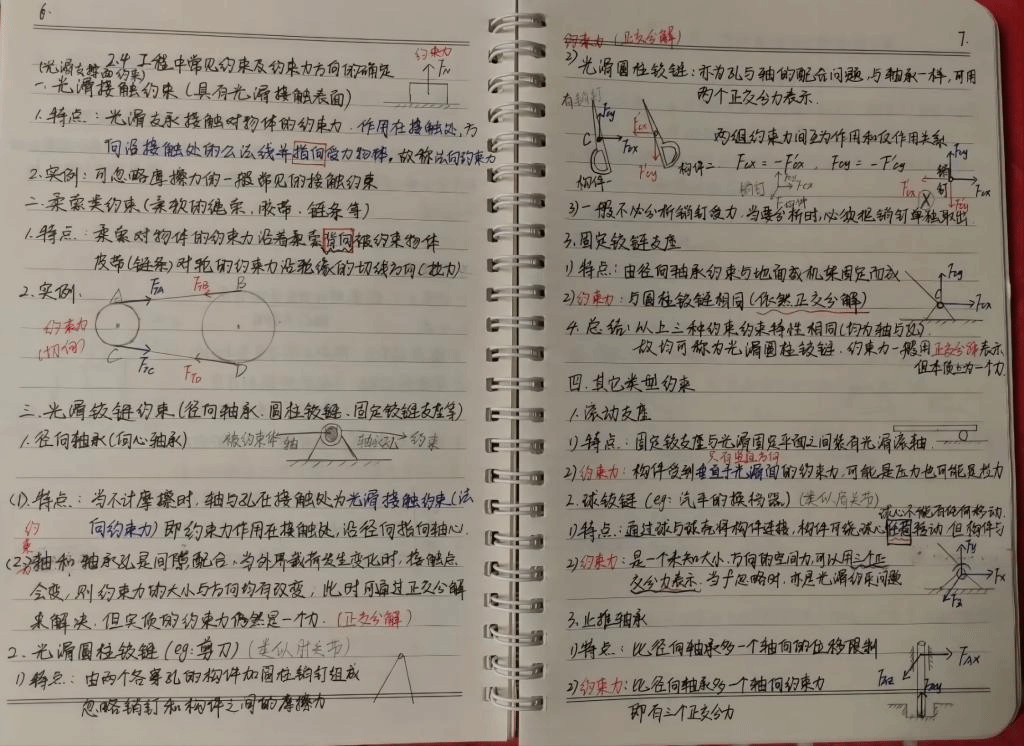 6.
2.4 工程中常见约束及约束力方向的确定
(光滑支撑面约束)
约束力
F_N
一.光滑接触约束(具有光滑接触表面)
1.特点:光滑支承接触对物体的约束力.作用在接触处,方
向沿接触处的公法线并指向受力物体,故称法向约束力
2.实例:可忽略摩擦力的一般常见的接触约束
二.柔索类约束(柔软的绳索.胶带.链条等)
1.特点:柔索对物体的约束力沿着柔索背向被约束物体
皮带(链条)对轮的约束力沿轮缘的切线方向(拉力)
2.实例.
A F_TA F_TB B
约束力
(切向)
C F_TC F_TD D
三.光滑铰链约束(径向轴承.圆柱铰链、固定铰链支座等)
1.径向轴承(向心轴承)
被约束体 轴 轴承孔 约束
(1).特点:当不计摩擦时.轴与孔在接触处为光滑接触约束(法
向约束力)即约束力作用在接触处,沿径向指向轴心.
约束力
(2)轴和轴承孔是间隙配合,当外界载荷发生变化时,接触点
会变,则约束力的大小与方向均有改变,此时可通过正交分解
来解决.但实质的约束力仍然是一个力.(正交分解)
2.光滑圆柱铰链(eg:剪刀)(类似肘关节)
1)特点:由两个各穿孔的构件加圆柱销钉组成
忽略销钉和构件之间的摩擦力
7.
约束力(正交分解)
2)光滑圆柱铰链:亦为孔与轴的配合问题,与轴承一样,可用
两个正交分力表示.
有销钉
F_cy
C F_cx
构件一
F'_cx
F'_cy
构件二
两组约束力间互为作用和反作用关系
F_cx = -F'_cx , F_cy = -F'_cy
销钉
F_cy
F_cx
F_cy
F_cx
销钉
F'_cx
F'_cy
3)一般不必分析销钉受力.当要分析时,必须把销钉单独取出
3.固定铰链支座
1)特点:由径向轴承约束与地面或机架固定而成
2)约束力:与圆柱铰链相同(依然正交分解)
F_cy
C F_cx
4.总结:以上三种约束约束特性相同(均为轴与孔).
故均可称为光滑圆柱铰链.约束力一般用正交分解表示
但本质上为一个力.
四.其它类型约束
1.滚动支座
1)特点:固定铰支座与光滑固定平面之间装有光滑滚轴.
只有竖直方向
2)约束力:构件受到垂直于光滑面的约束力,可能是压力也可能是拉力
2.球铰链(eg:汽车的换档器)(类似肩关节)
球心不能有任何移动.
1)特点:通过球与球壳将构件连接,构件可绕球心任意移动 但构件与
2)约束力:是一个未知大小.方向的空间力,可以用三个正
交分力表示.当于忽略时,亦是光滑约束问题
F_y
F_x
F_z
3.止推轴承
1)特点:比径向轴承多一个轴向的位移限制
2)约束力:比径向轴承多一个轴向约束力
即有三个正交分力
F_Ax
F_Az
F_Ay